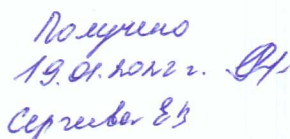 Получено
19.01.2022 г.
Сергеева ЕВ